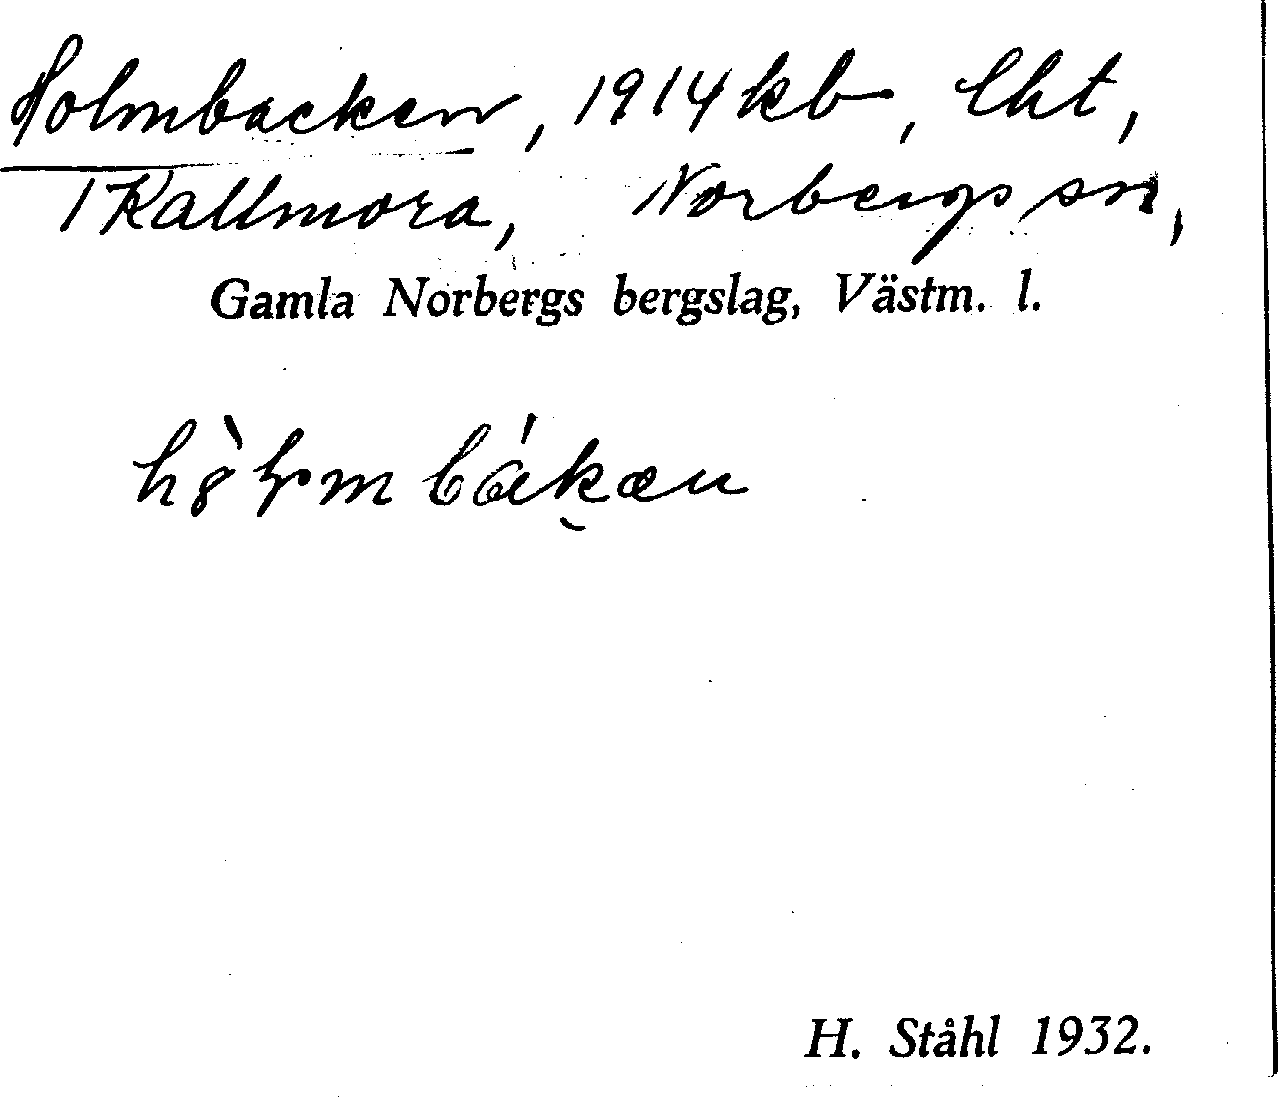 Holmbacken, 1914 kb, lht,
1 Kallmora, Norbergs sn,
Gamla Norbergs bergslag, Västm. l.
H. Ståhl 1932.